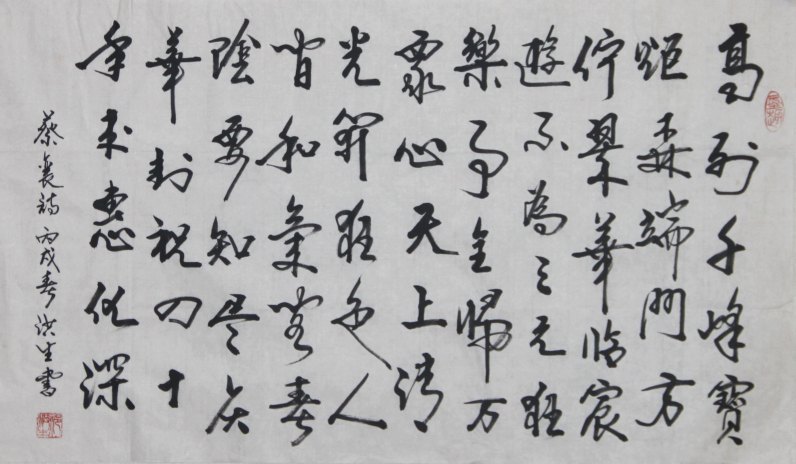 高列千峰寶
炬森端門方
佇翠華臨宸
遊不為三元
樂事全歸万
眾心天上清
光人
間和氣閣春
陰要知尽
華封祝四十
年来惠化深
蔡襄詩 丙戌春 洪生書